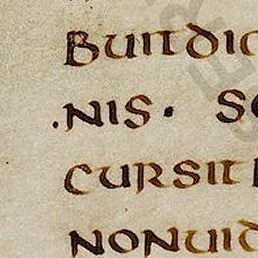 Buitdic
.Nis· so
cursite
Nonuid